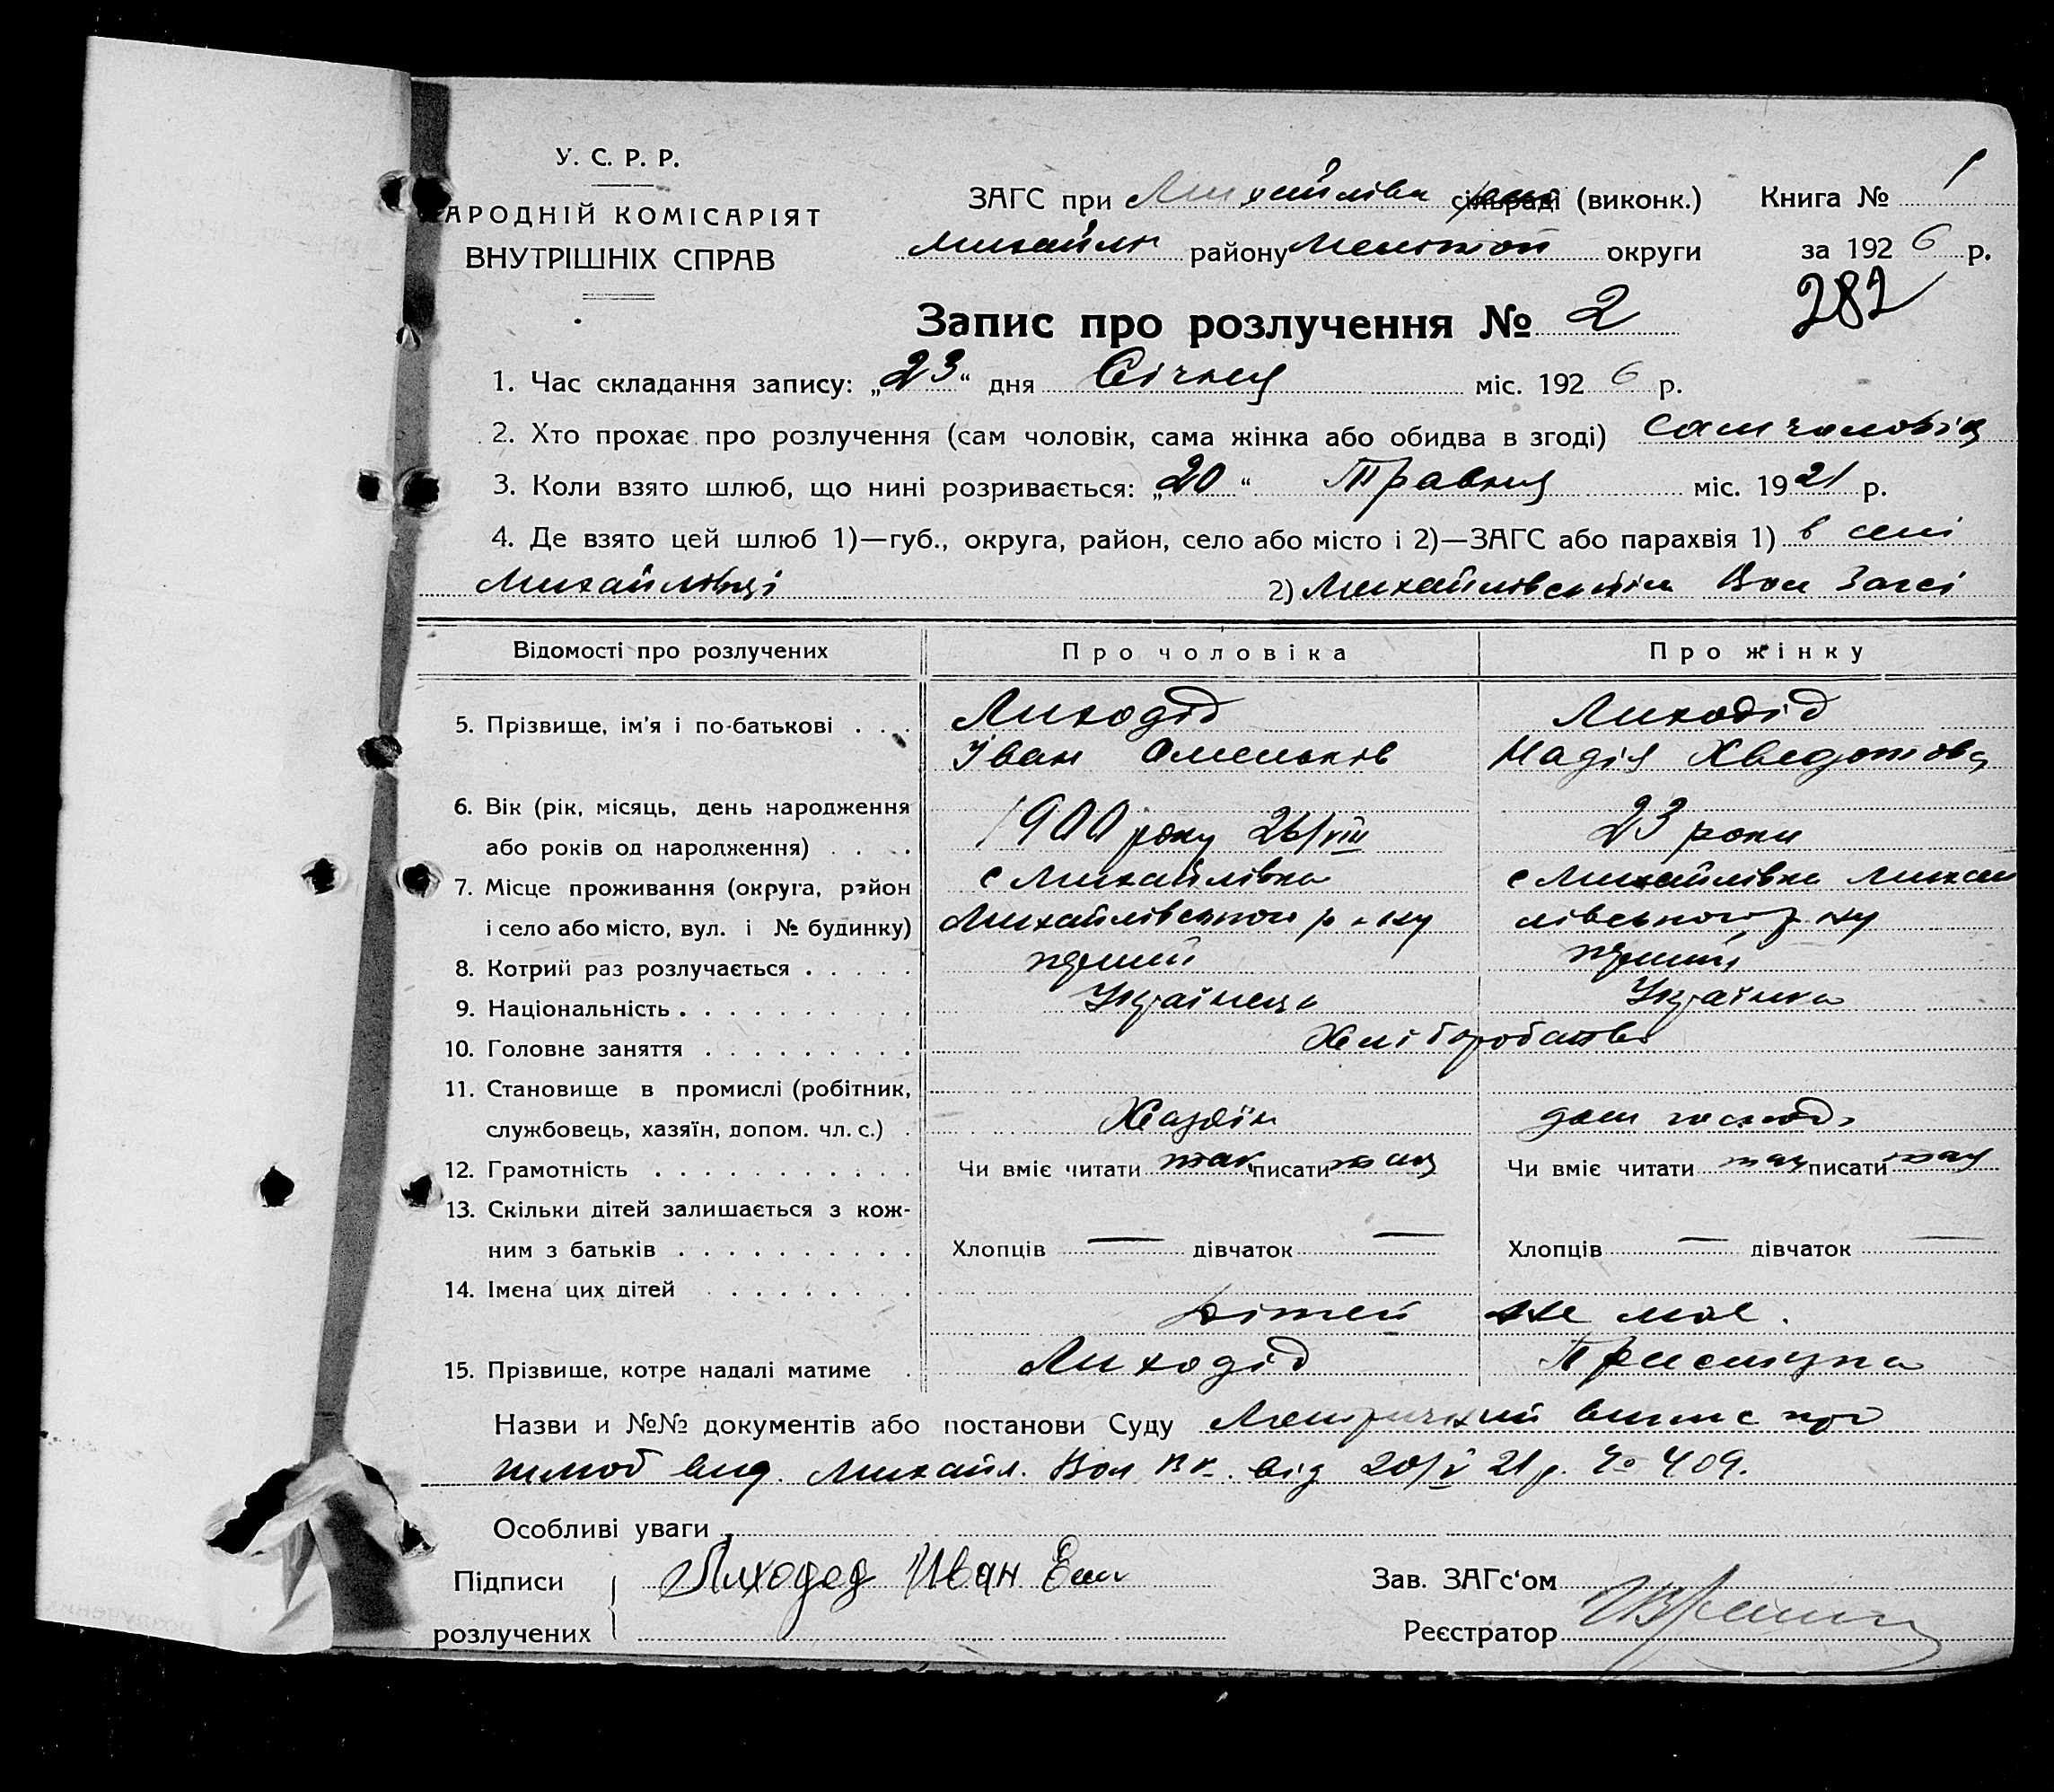 У. С. Р. Р.
АРОДНІЙ КОМІСАРІЯТ
ВНУТРІШНІХ СПРАВ
ЗАГС при Михайлівк сільраді (виконк.) Книга № 1
Михайл району Мелітоп округи за 1926 р.
282
Запис про розлучення № 2
1. Час складання запису: „23“ дня Січня міс. 1926 р.
2. Хто прохає про розлучення (сам чоловік, сама жінка або обидва в згоді) сам чоловік
3. Коли взято шлюб, що нині розривається: „20“ Травня міс. 1921 р.
4. Де взято цей шлюб 1)—губ., округа, район, село або місто і 2)—ЗАГС або парахвія 1) в селі
Михайлівці 2) Михайлівськім Вол Загсі
Відомості про розлучених Про чоловіка Про жінку
5. Прізвище, ім'я і по-батькові . . . Лиходід Лиходід
Іван Омельков Надія Хведотова
6. Вік (рік, місяць, день народження
або років од народження) . . . . 1900 року 26/VIII 23 роки
7. Місце проживання (округа, район с Михайлівка с Михайлівка Михай
і село або місто, вул. і № будинку) Михайлівського р-ну лівського р-ну
8. Котрий раз розлучається . . . . . перший перший
9. Національність . . . . . . . . . . Українець Українка
10. Головне заняття . . . . . . . . . Хліборобство
11. Становище в промислі (робітник,
службовець, хазяїн, допом. чл. с.) . Хазяїн дом господ
12. Грамотність . . . . . . . . . . . Чи вміє читати так писати так Чи вміє читати так писати так
13. Скільки дітей залишається з кож-
ним з батьків . . . . . . . . . . Хлопців — дівчаток — Хлопців — дівчаток —
14. Імена цих дітей . . . . . . . . .
дітей не має.
15. Прізвище, котре надалі матиме . Лиходід Приступа
Назви и №№ документів або постанови Суду Метричний випис про
шлюб вид. Михайл. Вол Вк. від 20/V 21 р. № 409.
Особливі уваги
Підписи Лиходед Иван Ем Зав. ЗАГс'ом
розлучених Реєстратор